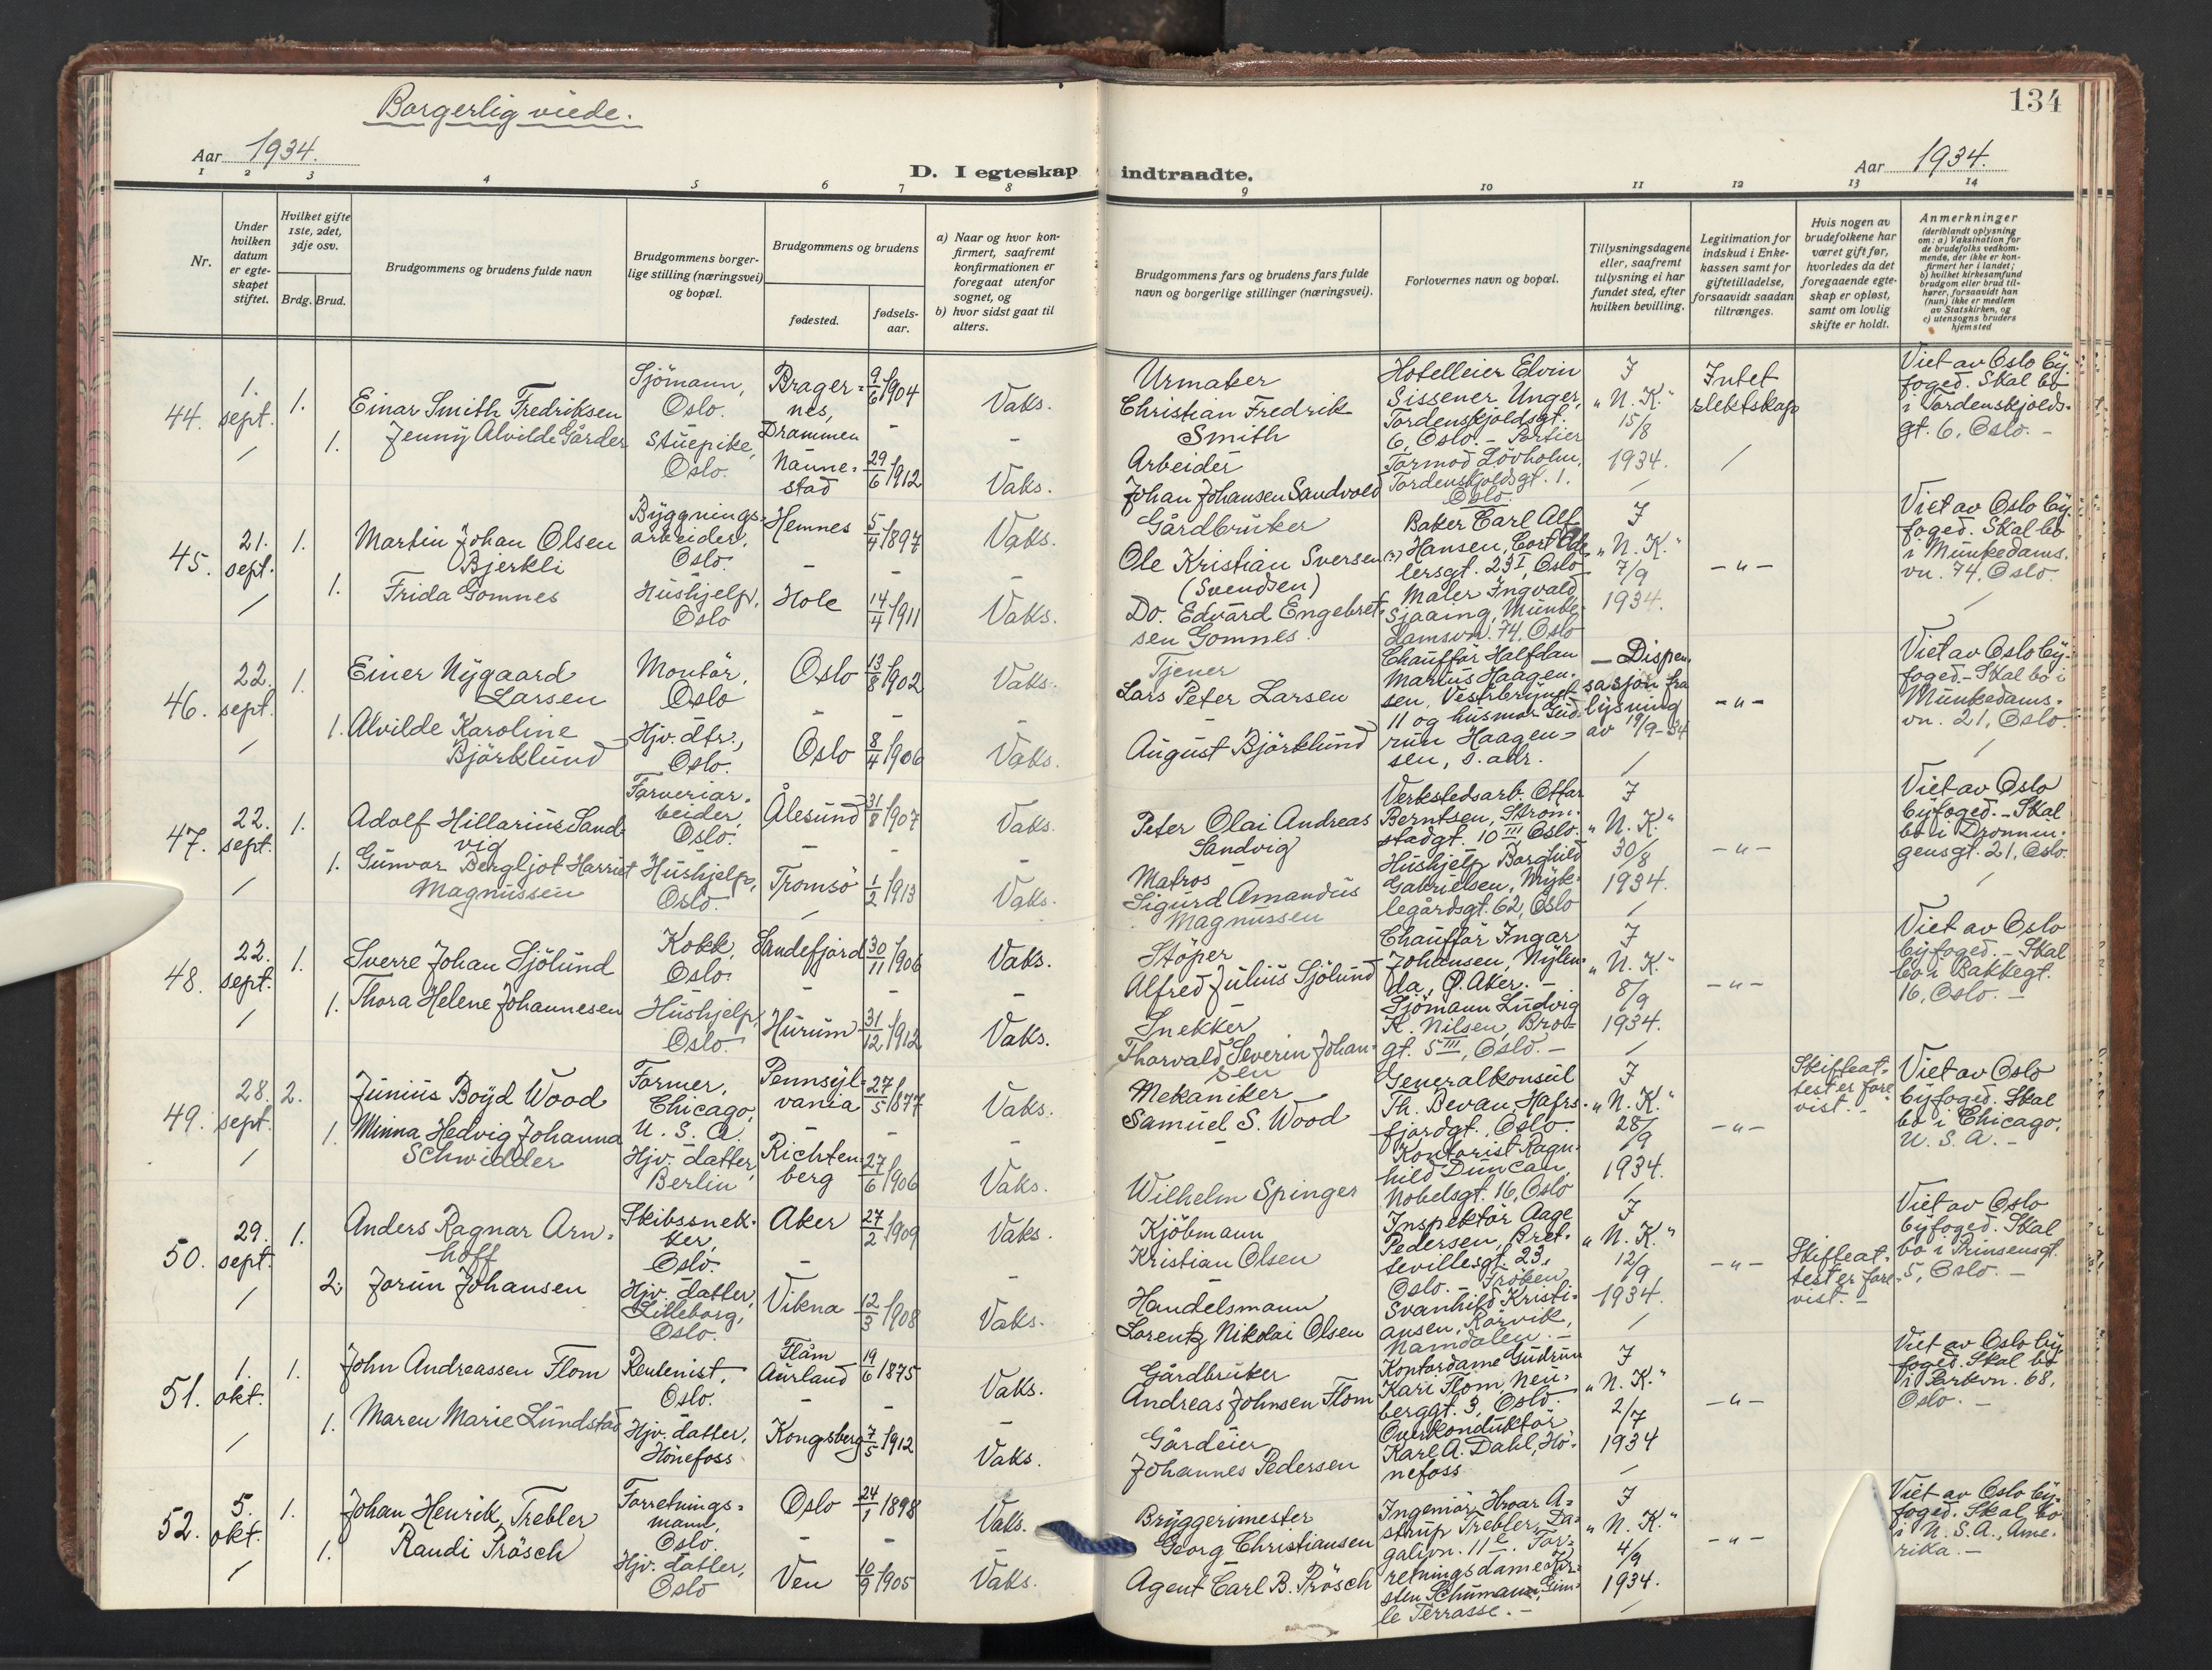 Borgerlig viede.
Aar 1934.
D. I egteskap indtraadte.
Aar 1934.
134
1 2 3 4 5 6 7 8 9 10 11 12 13 14
Nr.
Under hvilken datum er egteskapet stiftet.
Hvilket gifte 1ste, 2det, 3dje osv.
Brdg. Brud.
Brudgommens og brudens fulde navn
Brudgommens borgerlige stilling (næringsvei) og bopæl.
Brudgommens og brudens
fødested.
fødselsaar.
a) Naar og hvor konfirmert, saafremt konfirmationen er foregaat utenfor sognet, og
b) hvor sidst gaat til alters.
Brudgommens fars og brudens fars fulde navn og borgerlige stillinger (næringsvei).
Forlovernes navn og bopæl.
Tillysningsdagene eller, saafremt tillysning ei har fundet sted, efter hvilken bevilling.
Legitimation for indskud i Enkekassen samt for giftetilladelse, forsaavidt saadan tiltrænges.
Hvis nogen av brudefolkene har været gift før, hvorledes da det foregaaende egteskap er opløst, samt om lovlig skifte er holdt.
Anmerkninger (deriblandt oplysning om: a) Vaksination for de brudefolks vedkommende, der ikke er konfirmert her i landet; b) hvilket kirkesamfund brudgom eller brud tilhører, forsaavidt han (hun) ikke er medlem av Statskirken, og c) utensogns bruders hjemsted
44. 1. sept. 1. 1.
Einar Smith Fredriksen
Jenny Alvilde Gårder
Sjömann, Oslo.
Stuepike, Oslo.
Bragernes, Drammen
Nannestad
9/6 1904
29/6 1912
Vaks.
Vaks.
Urmaker
Christian Fredrik
Smith
Arbeider
Johan Johansen Sandvold
Hotelleier Elvin
Sissener Unger,
Tordenskjoldsgt.
6, Oslo. - Portier
Tormod Lövholm,
Tordenskjoldsgt. 1.
Oslo.
I
"N. K."
15/8
1934.
Intet
slektskap
Viet av Oslo by-
foged. Skal bo
i Tordenskjolds-
gt. 6. Oslo. -
45. 21. sept. 1. 1.
Martin Johan Olsen
Bjerkli
Frida Gomnes
Bygnings-
arbeider,
Oslo.
Hushjelp,
Oslo
Hemnes
Hole
5/4 1897
14/4 1911
Vaks.
Vaks.
Gårdbruker
Ole Kristian Sversen (?)
(Svendsen)
Do. Edvard Engebret-
sen Gomnes.
Baker Carl Alf
Hansen, Cort Ade
lersgt. 23 I, Oslo
Maler Ingvald
Sjaaing, Munke-
damsvn. 74, Oslo
I
"N. K."
7/9
1934.
- " -
Viet av Oslo by-
foged. Skal bo
i Munkedams-
vn. 74, Oslo.
46. 22. sept. 1. 1.
Einer Nygaard
Larsen
Alvilde Karoline
Björklund
Montör,
Oslo
Hjv. dtr.,
Oslo.
Oslo
Oslo
13/8 1902
8/4 1906
Vaks.
Vaks.
Tjener
Lars Peter Larsen
August Björklund
Chaufför Halfdan
Marius Haagen-
sen, Vestbrynet
11 og husmor Gud-
run Haagen-
sen, s. adr.
- Dispen-
sasjon fra
lysning
av 19/9-34
- " -
Viet av Oslo by-
foged. - Skal bo i
Munkedams-
vn. 21, Oslo.
47. 22. sept. 1. 1.
Adolf Hillarius Sand-
vig
Gunvor Bergljot Harriet
Magnussen
Farveriar-
beider,
Oslo.
Hushjelp,
Oslo.
Ålesund
Tromsö
31/8 1907
1/2 1913
Vaks.
Vaks.
Peter Olai Andreas
Sandvig
Matros
Sigurd Amandus
Magnussen
Verkstedsarb. Ottar
Berntsen, Ström-
stadgt. 10 III Oslo.
Hushjelp Borghild
Gabrielsen, Myk-
legårdsgt. 62, Oslo
I
"N. K."
30/8
1934.
- " -
Viet av Oslo
byfoged. - Skal
bo i Dronnin-
gensgt. 21, Oslo.
48. 22. sept. 1. 1.
Sverre Johan Sjölund
Thora Helene Johannesen
Kokk,
Oslo.
Hushjelp,
Oslo.
Sandefjord
Hurum
30/11 1906
31/12 1912
Vaks.
Vaks.
Stöper
Alfred Julius Sjölund
Snekker
Thorvald Severin Johan-
sen
Chaufför Ingar
Johansen, Nylen-
da, Ö. Aker. -
Sjömann Ludvig
K. Nilsen, Bro-
gt. 5 III, Oslo. -
I
"N. K."
8/9
1934.
- " -
Viet av Oslo
byfoged. - Skal
bo i Bakkegt.
16, Oslo. -
49. 28. sept. 2. 1.
Junius Boyd Wood
Minna Hedvig Johanna
Schwidder
Farmer,
Chicago,
U. S. A.
Hjv. datter,
Berlin
Pennsyl-
vania
Richten-
berg
27/5 1877
27/6 1906
Vaks.
Vaks.
Mekaniker
Samuel S. Wood
Wilhelm Springer
Generalkonsul
Th. Bevan, Hafrs-
fjordgt., Oslo.
Kontorist Ragn-
hild Duncan,
Nobelsgt. 16, Oslo
I
"N. K."
28/9
1934.
- " -
Skifteat-
test er fore
vist. -
Viet av Oslo
byfoged. Skal
bo i Chicago,
U. S. A. -
50. 29. sept. 1. 2.
Anders Ragnar Arn-
hoff
Jorun Johansen
Skibssnek-
ker,
Oslo.
Hjv. datter,
Lilleborg,
Oslo.
Aker
Vikna
27/2 1909
12/3 1908
Vaks.
Vaks.
Kjöbmann
Kristian Olsen
Handelsmann
Lorentz Nikolai Olsen
Inspektör Aage
Pedersen, Bret-
tevillesgt. 23,
Oslo. - Fröken
Svanhild Kristi-
ansen, Rörvik,
Namdalen. -
I
"N. K."
12/9
1934.
- " -
Skifteat-
test er fore-
vist. -
Viet av Oslo
byfoged. Skal
bo i Prinsensgt.
5, Oslo. -
51. 1. okt. 1. 1.
John Andreassen Flom
Maren Marie Lundstad
Rentenist,
Oslo.
Hjv. datter,
Hönefoss
Flåm
Aurland
Kongsberg
19/6 1875
7/5 1912
Vaks.
Vaks.
Gårdbruker
Andreas Johnsen Flom
Gårdeier
Johannes Pedersen
Kontordame Gudrun
Kari Flom, Neu-
berggt. 3, Oslo.
Overkonduktör
Karl A. Dahl, Hö-
nefoss
I
"N. K."
2/7
1934
- " -
Viet av Oslo by-
foged. Skal bo
i Parkvn. 68,
Oslo. -
52. 5. okt. 1. 1.
Johan Henrik Trebler
Randi Prösch
Forretnings-
mann,
Oslo.
Hjv. datter,
Oslo
Oslo
Ven
24/1 1898
10/9 1905
Vaks.
Vaks.
Bryggerimester
Georg Christiansen
Agent Carl B. Prösch
Ingeniör Hroar A-
strup Trebler, Da-
galivn. 11 . For-
retningsdame Kir-
sten Schumann, Gim-
le Terrasse. -
I
"N. K."
4/9
1934.
- " -
Viet av Oslo by-
foged. Skal bo
i U. S. A., Ame-
rika. -